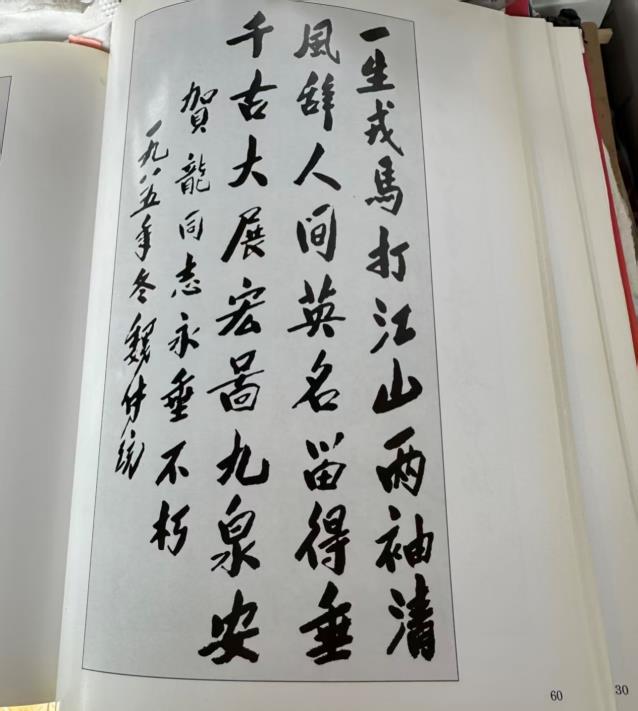 一生戎馬打江山两袖清
風辞人间英名留得垂
千古大展宏图九泉安
賀龍同志永垂不朽
一九八五年冬魏传统
60
30